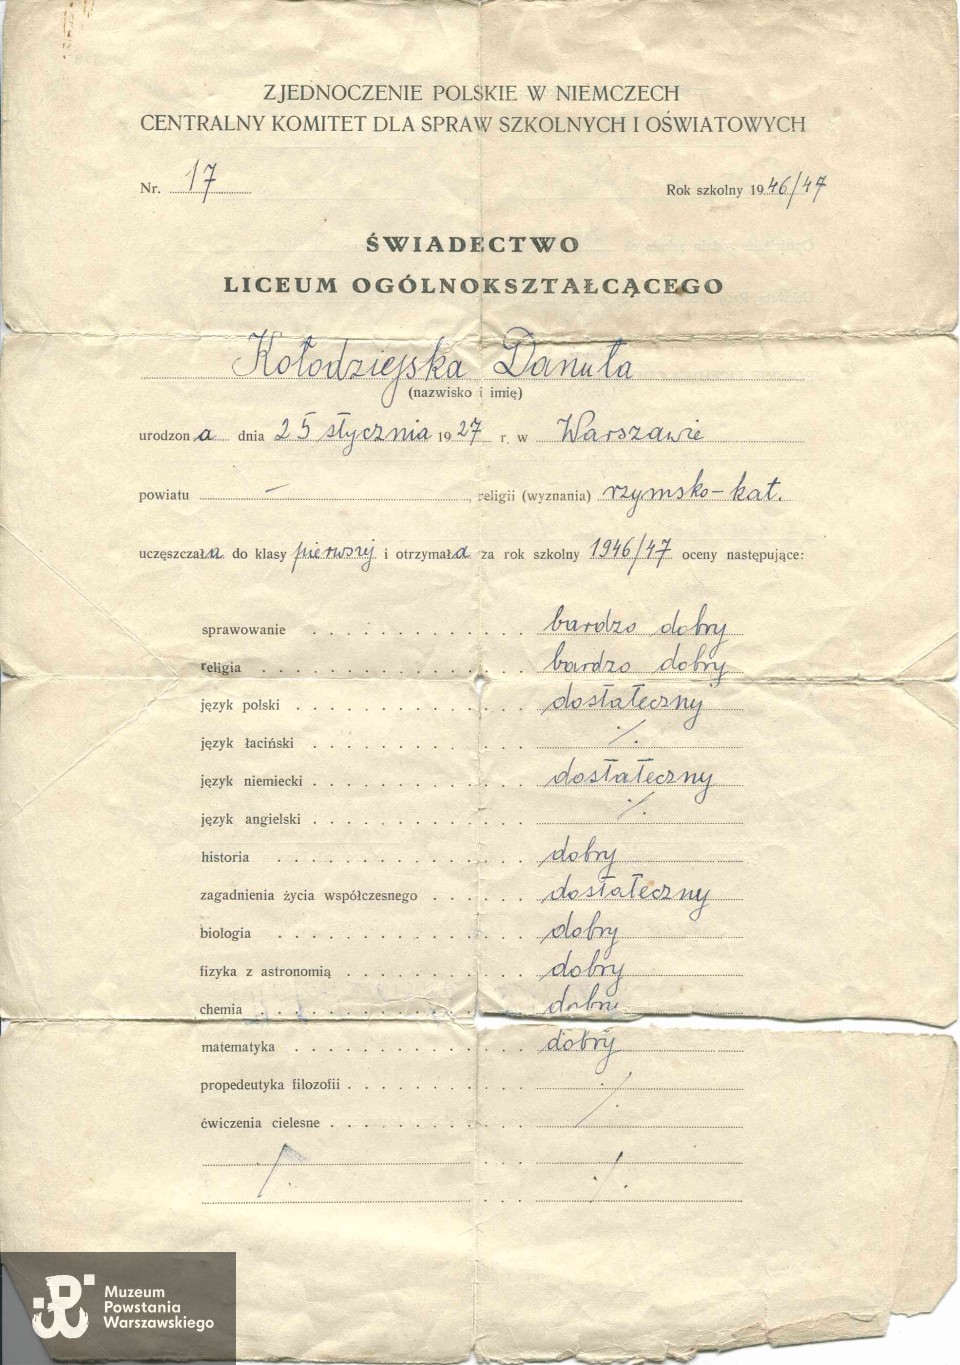 ZJEDNOCZENIE POLSKIE W NIEMCZECH
CENTRALNY KOMITET DLA SPRAW SZKOLNYCH I OŚWIATOWYCH
Nr. 17 Rok szkolny 1946/47
ŚWIADECTWO
LICEUM OGÓLNOKSZTAŁCĄCEGO
Kołodziejska Danuta
(nazwisko i imię)
urodzona dnia 25 stycznia 1927 r. w Warszawie
powiatu — , religii (wyznania) rzymsko-kat.
uczęszczała do klasy pierwszej i otrzymała za rok szkolny 1946/47 oceny następujące:
sprawowanie . . . . . . . . . . . . . bardzo dobry
religia . . . . . . . . . . . . . . . . bardzo dobry
język polski . . . . . . . . . . . . . . dostateczny
język łaciński . . . . . . . . . . . . . ./.
język niemiecki . . . . . . . . . . . . . dostateczny
język angielski . . . . . . . . . . . . . ./.
historia . . . . . . . . . . . . . . . dobry
zagadnienia życia współczesnego . . . . . . dostateczny
biologia . . . . . . . . . . . . . . . dobry
fizyka z astronomią . . . . . . . . . . . dobry
chemia . . . . . . . . . . . . . . . . dobry
matematyka . . . . . . . . . . . . . . dobry
propedeutyka filozofii . . . . . . . . . . . ./.
ćwiczenia cielesne . . . . . . . . . . . .
./. . . . ./.
Muzeum
Powstania
Warszawskiego